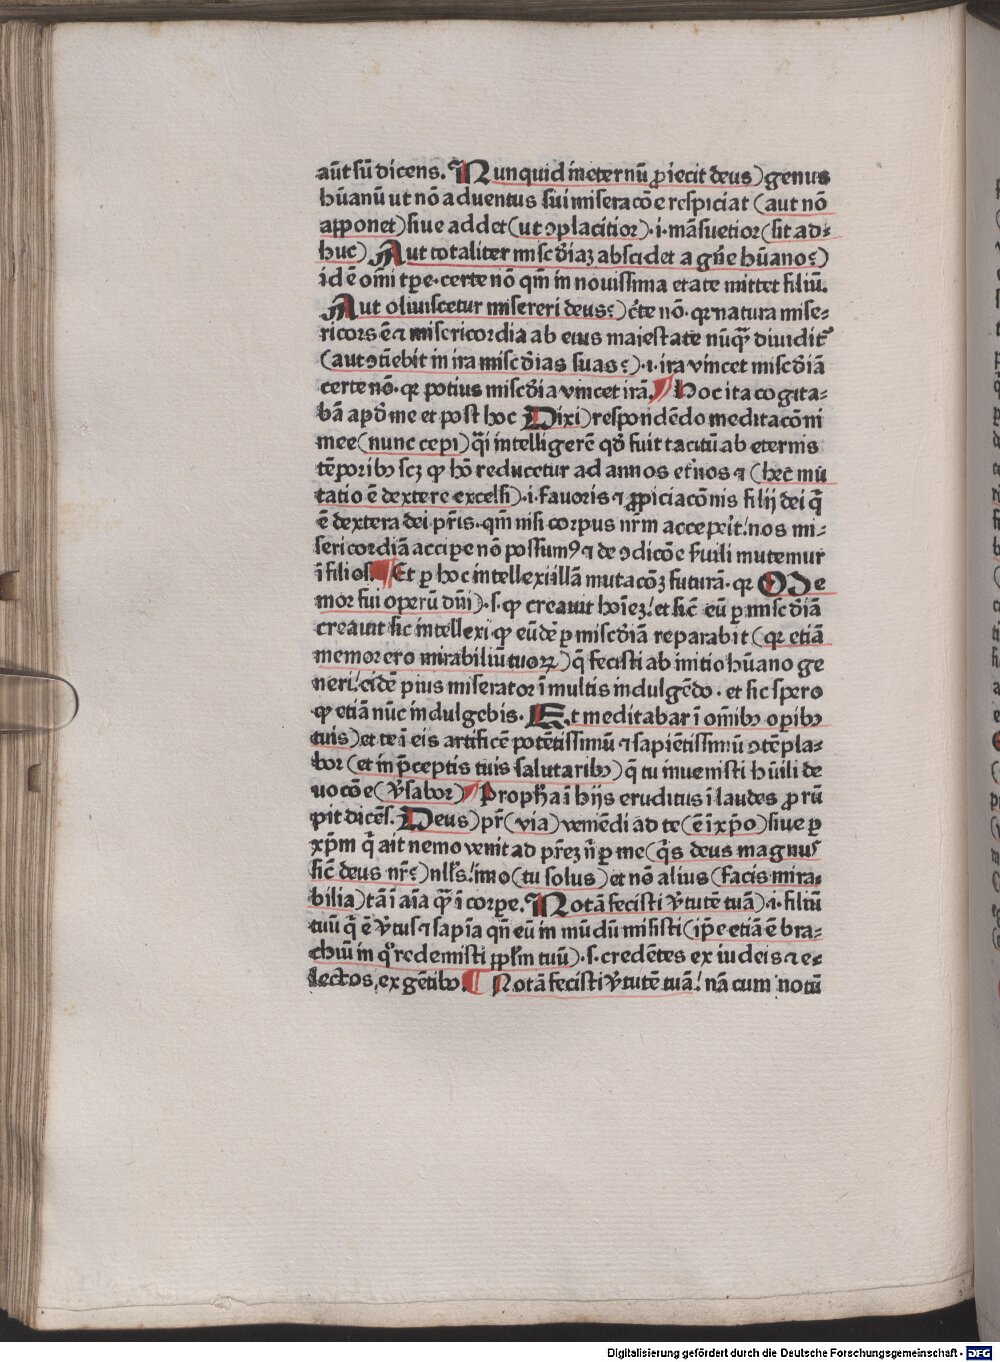 aūt sū dicens. Nunquid in eternū ꝓiecit deus) genus
hūanū ut nō aduentus sui miseracōe respiciat (aut nō
apponet) siue addet (ut ↄplacitior) .i. māsuetior (sit ad⸗
huc) Aut totaliter misc̄diaꝫ abscidet a gn̄e hūano?)
id ē om̄i tp̄e. certe nō qm̄ in nouissima etate mittet filiū.
Aut obliuiscetur misereri deus?) c̄te nō. qꝛ natura mise⸗
ricors ē ⁊ misericordia ab eius maiestate nūqͣ diuidit᷑
(aut ↄtīebit in ira misc̄dias suas?) .i. ira vincet misc̄diā
certe nō. qꝛ potius misc̄dia vincet irā. ¶ Hoc ita cogita⸗
bā apd̄ me et post hoc Dixi) respondēdo meditacōni
mee (nunc cepi) qͣi intelligere qd̄ fuit tacitū ab eternis
tēporibꝰ scꝫ ꝙ hō reducetur ad annos et̓nos ⁊ (hec mū
tatio ē dextere excelsi) .i. fauoris ⁊ ꝓpiciacōnis filij dei q̄
ē dextera dei pr̄is. qm̄ nisi corpus nr̄m accepe̓it! nos mi⸗
sericordiā accipe nō possumꝰ ⁊ de ↄdicōe s̓uili mutemur
ī filios. ¶ Et ꝑ hoc intellexi illā mutacōꝫ futurā. qꝛ Me
mor fui operū dn̄i) .s. ꝙ creauit hoīeꝫ! et sic̄ eū ꝑ misc̄diā
creauit sic intellexi ꝙ eūdē ꝑ misc̄diā reparabit (qꝛ etiā
memor ero mirabiliū tuoꝝ) q̄ fecisti ab initio hūano ge
neri! eidē pius miserator ī multis indulgēdo. et sic spero
ꝙ etiā nūc indulgebis. Et meditabar ī om̄ibꝰ oꝑibꝰ
tuis) et te ī eis artificē potētissimū ⁊ sapiētissimū ↄtēpla⸗
bor (et in p̄ceptis tuis salutaribꝰ) q̄ tu inuenisti hūili de
uocōe (ex̓sabor) ¶ Propħa ī hijs eruditus ī laudes ꝓrū
pit dicēs. Deus) pr̄ (via) veniēdi ad te (ē ī xp̄o) siue ꝑ
xp̄m q̄ ait nemo venit ad pr̄eꝫ n̄ ꝑ me (q̄s deus magnus
sic̄ deus nr̄?) nll̓s! īmo (tu solus) et nō alius (facis mira⸗
bilia) tā ī aīa qͣ ī corpe. Notā fecisti v̓tutē tuā) .i. filiū
tuū q̄ ē v̓tus ⁊ sapīa qn̄ eū in mūdū misisti (ip̄e etiā ē bra⸗
chiū in qͦ redemisti pp̄lm tuū) .s. credētes ex iudeis ⁊ e⸗
lectos, ex gētibꝰ. ¶ Notā fecisti v̓tutē tuā! nā cum notū
Digitalisierung gefördert durch die Deutsche Forschungsgemeinschaft - DFG